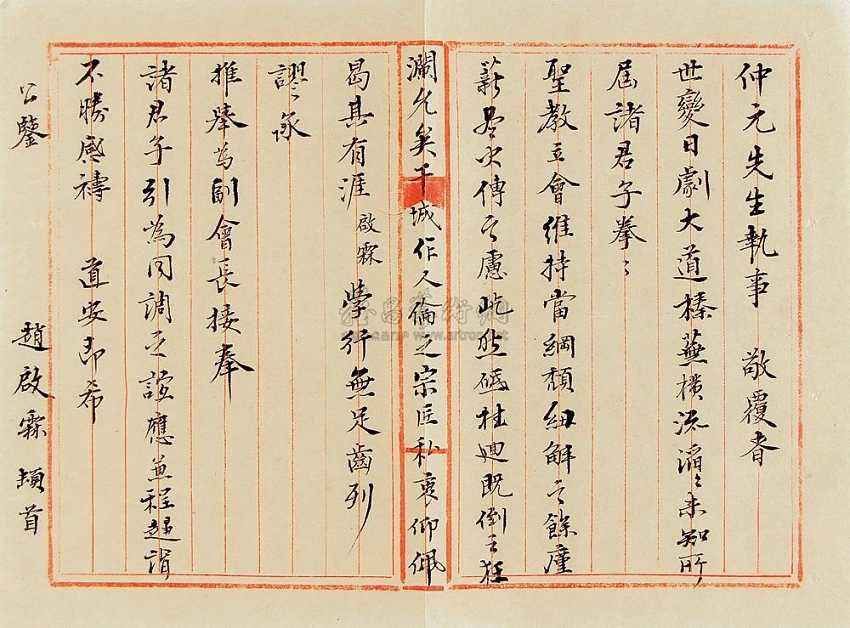 仲元先生執事 敬覆者
世變日劇大道榛蕪橫流滔〻未知所
屆諸君子拳〻
聖教立會維持當綱頹紐解之餘廑
薪盡火傳之慮屹然砥柱迴既倒之狂
瀾允矣干城作人倫之宗匠私衷仰佩
曷其有涯啟霖學行無足齒列
謬承
推舉為副會長接奉
諸君子引為同調之誼應兼程趨詣
不勝感禱 道安即希
公鑒
趙啟霖頓首